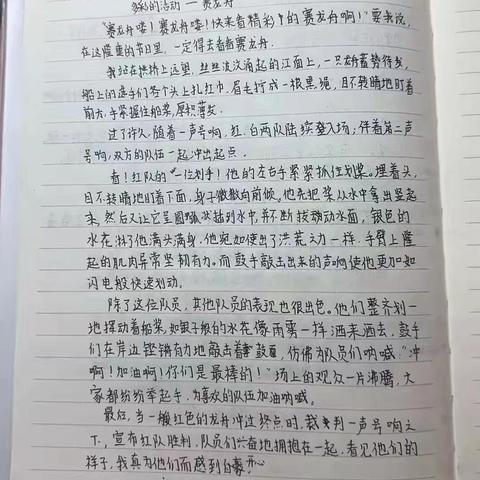 多彩的活动——赛龙舟
“赛龙舟喽！赛龙舟喽！快来看精彩的赛龙舟啊！”要我说，
在这隆重的节日里，一定得去看看赛龙舟。
我站在拱桥上远望，丝丝波汶涌起的江面上，一只龙舟蓄势待发，
船上的选手们各个头上扎红巾，眉毛拧成一根黑绳，目不转睛地盯着
前方，手紧握住船桨，厚积薄发。
过了许久，随着一声号响，红、白两队陆续登入场，伴着第二声
号响，双方的队伍一起冲出起点。
看！红队的一位划手！他的左右手紧紧抓住划桨。埋着头，
目不转睛地盯着下面，身子微微向前倾。他先把桨从水中拿出竖起
来，然后又让它呈圆弧状插到水中，并不断拨动水面，银色的
水花淋了他满头满身，他宛如使出了洪荒之力一样，手臂上隆
起的肌肉异常坚韧有力。而鼓手敲击出来的声响使他更加如
闪电般快速划动。
除了这位队员，其他队员的表现也很出色。他们整齐划一
地挥动着船桨，如银子般的水花像雨雾一样洒来洒去，鼓手
们在岸边铿锵有力地敲击着鼓面，仿佛为队员们呐喊，“冲
啊！加油啊！你们是最棒的！”场上的观众一片沸腾，大
家都纷纷举起手，为喜欢的队伍加油呐喊。
最后，当一艘红色的龙舟冲过终点时，裁判一声号响之
下，宣布红队胜利，队员们兴奋地拥抱在一起，看见他们的
样子，我真为他们而感到自豪开心